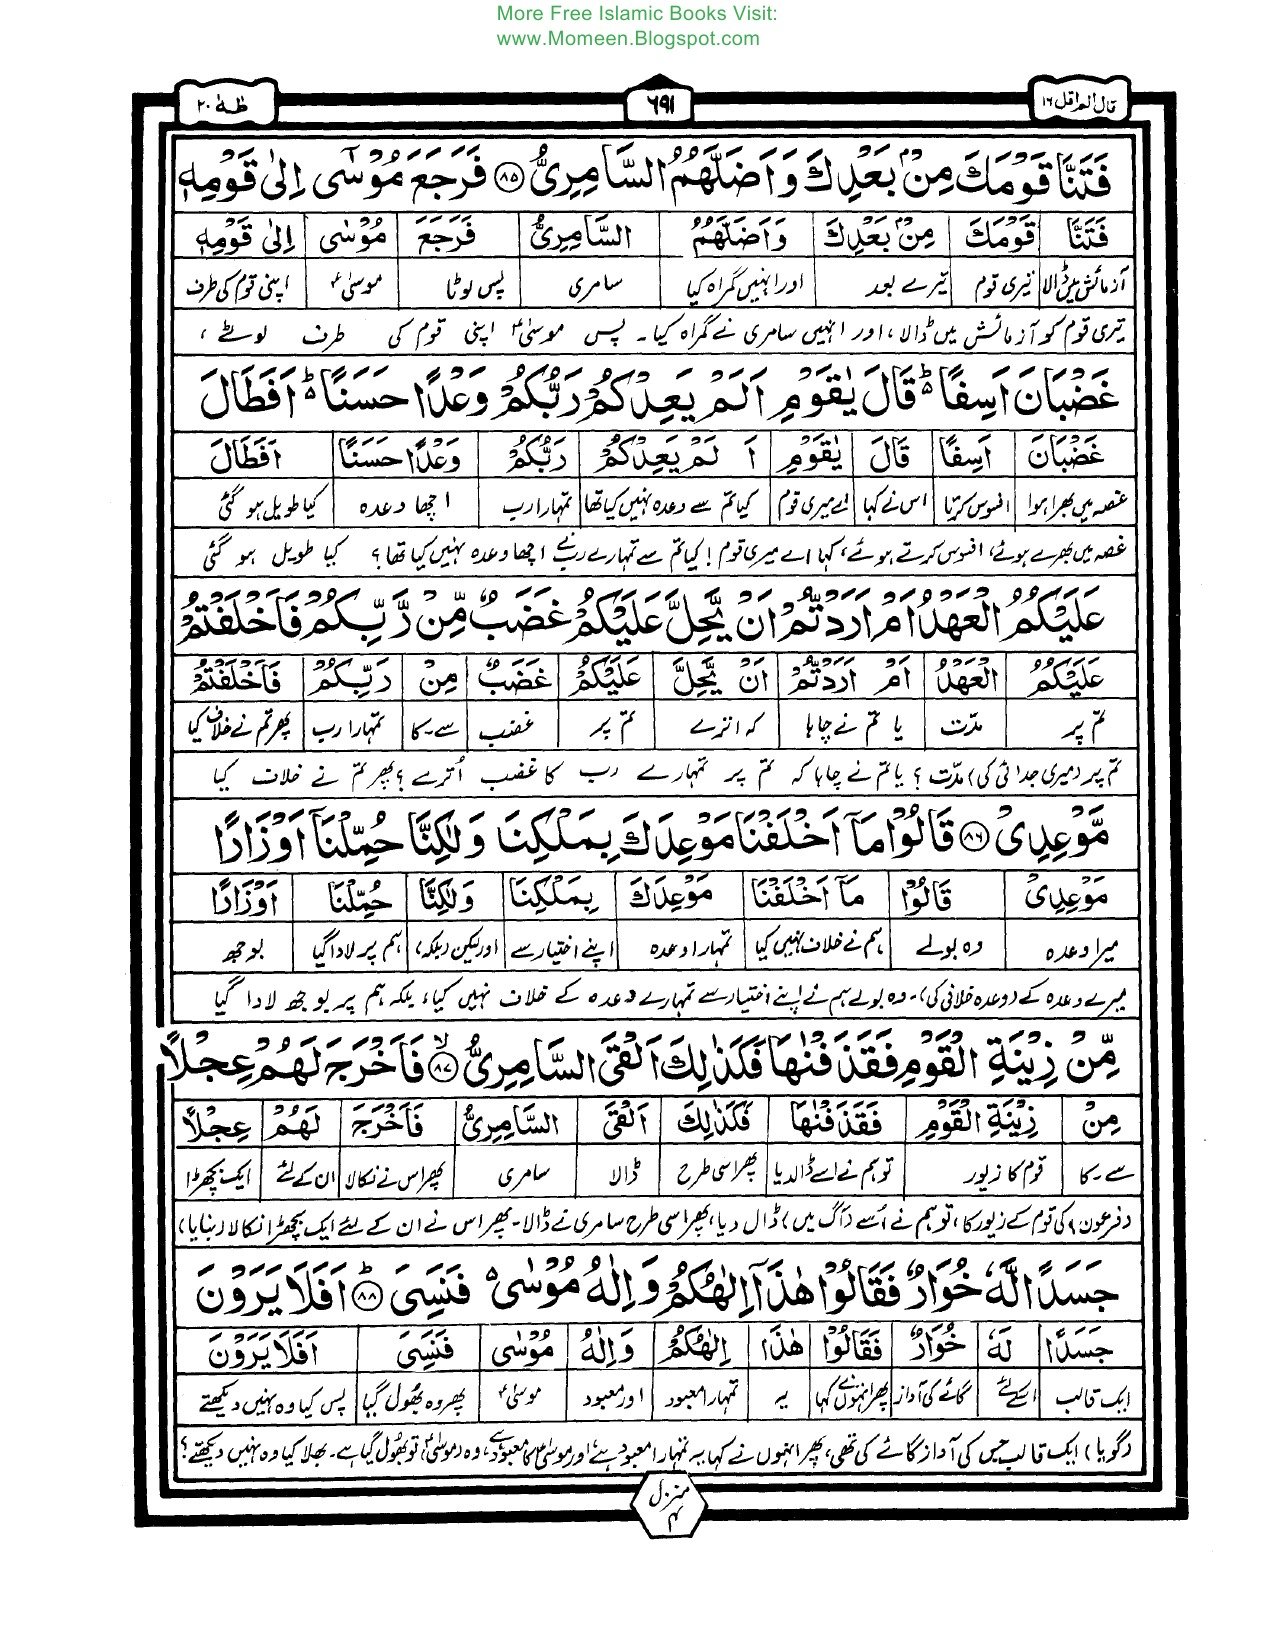 More Free Islamic Books Visit:
www.Momeen.Blogspot.com
قال الم اقل ١٦ ٦٩١ طٰهٰ ٢٠
فَتَنَّا قَوْمَكَ مِنْۢ بَعْدِكَ وَاَضَلَّهُمُ السَّامِرِىُّ ٨٥ فَرَجَعَ مُوْسٰٓى اِلٰى قَوْمِهٖ
فَتَنَّا قَوْمَكَ مِنْۢ بَعْدِكَ وَاَضَلَّهُمُ السَّامِرِىُّ فَرَجَعَ مُوْسٰى اِلٰى قَوْمِهٖ
آزمائش میں ڈالا تیری قوم تیرے بعد اور انہیں گمراہ کیا سامری پس لوٹا موسیٰؑ اپنی قوم کی طرف
تیری قوم کو آزمائش میں ڈالا، اور انہیں سامری نے گمراہ کیا۔ پس موسیٰؑ اپنی قوم کی طرف لوٹے،
غَضْبَانَ اَسِفًا ۚ قَالَ يٰقَوْمِ اَلَمْ يَعِدْكُمْ رَبُّكُمْ وَعْدًا حَسَنًا ۚ اَفَطَالَ
غَضْبَانَ اَسِفًا قَالَ يٰقَوْمِ اَ لَمْ يَعِدْكُمْ رَبُّكُمْ وَعْدًا حَسَنًا اَفَطَالَ
غصہ میں بھرا ہوا افسوس کرتا اس نے کہا اے میری قوم کیا تم سے وعدہ نہیں کیا تھا تمہارا رب اچھا وعدہ کیا طویل ہو گئی
غصہ میں بھرے ہوئے، افسوس کرتے ہوئے، کہا اے میری قوم! کیا تم سے تمہارے رب نے اچھا وعدہ نہیں کیا تھا؟ کیا طویل ہو گئی
عَلَيْكُمُ الْعَهْدُ اَمْ اَرَدْتُّمْ اَنْ يَّحِلَّ عَلَيْكُمْ غَضَبٌ مِّنْ رَّبِّكُمْ فَاَخْلَفْتُمْ
عَلَيْكُمُ الْعَهْدُ اَمْ اَرَدْتُّمْ اَنْ يَّحِلَّ عَلَيْكُمْ غَضَبٌ مِنْ رَبِّكُمْ فَاَخْلَفْتُمْ
تم پر مدّت یا تم نے چاہا کہ اترے تم پر غضب سے۔کا تمہارا رب پھر تم نے خلاف کیا
تم پر (میری جدائی کی) مدّت؟ یا تم نے چاہا کہ تم پر تمہارے رب کا غضب اُترے؟ پھر تم نے خلاف کیا
مَّوْعِدِىْ ٨٦ قَالُوْا مَآ اَخْلَفْنَا مَوْعِدَكَ بِمَلْكِنَا وَلٰكِنَّا حُمِّلْنَآ اَوْزَارًا
مَوْعِدِىْ قَالُوْا مَآ اَخْلَفْنَا مَوْعِدَكَ بِمَلْكِنَا وَلٰكِنَّا حُمِّلْنَا اَوْزَارًا
میرا وعدہ وہ بولے ہم نے خلاف نہیں کیا تمہارا وعدہ اپنے اختیار سے اور لیکن (بلکہ) ہم پر لادا گیا بوجھ
میرے وعدہ کے (وعدہ خلافی کی)۔ وہ بولے ہم نے اپنے اختیار سے تمہارے وعدہ کے خلاف نہیں کیا، بلکہ ہم پر بوجھ لادا گیا
مِّنْ زِيْنَةِ الْقَوْمِ فَقَذَفْنٰهَا فَكَذٰلِكَ اَلْقَى السَّامِرِىُّ ۙ ٨٧ فَاَخْرَجَ لَهُمْ عِجْلًا
مِنْ زِيْنَةِ الْقَوْمِ فَقَذَفْنٰهَا فَكَذٰلِكَ اَلْقَى السَّامِرِىُّ فَاَخْرَجَ لَهُمْ عِجْلًا
سے۔کا قوم کا زیور تو ہم نے اسے ڈالدیا پھر اسی طرح ڈالا سامری پھر اس نے نکالا ان کے لئے ایک بچھڑا
(فرعون) کی قوم کے زیور کا، تو ہم نے اُسے (آگ میں) ڈال دیا، پھر اسی طرح سامری نے ڈالا۔ پھر اس نے ان کے لئے ایک بچھڑا نکالا (بنایا)
جَسَدًا لَّهٗ خُوَارٌ فَقَالُوْا هٰذَآ اِلٰهُكُمْ وَاِلٰهُ مُوْسٰى ۬ فَنَسِىَ ؕ ٨٨ اَفَلَا يَرَوْنَ
جَسَدًا لَهٗ خُوَارٌ فَقَالُوْا هٰذَا اِلٰهُكُمْ وَاِلٰهُ مُوْسٰى فَنَسِىَ اَفَلَا يَرَوْنَ
ایک قالب اسکے لئے گائے کی آواز پھر انہوں نے کہا یہ تمہارا معبود اور معبود موسیٰؑ پھر وہ بھول گیا پس کیا وہ نہیں دیکھتے
(گویا) ایک قالب جس کی آواز گائے کی تھی، پھر انہوں نے کہا یہ تمہارا معبود ہے اور موسیٰؑ کا معبود ہے، وہ (موسیٰؑ) تو بھول گیا ہے۔ بھلا کیا وہ نہیں دیکھتے؟
منزل ۴